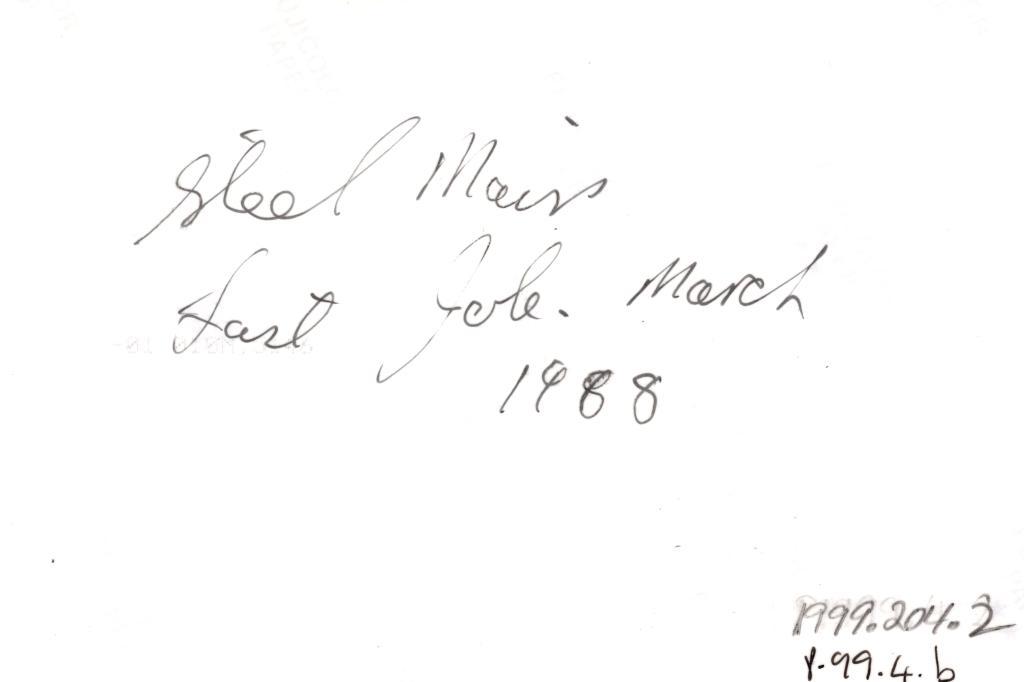 Steel Mains
Last Job. March
1988
1999.204.2
Y.99.4.b